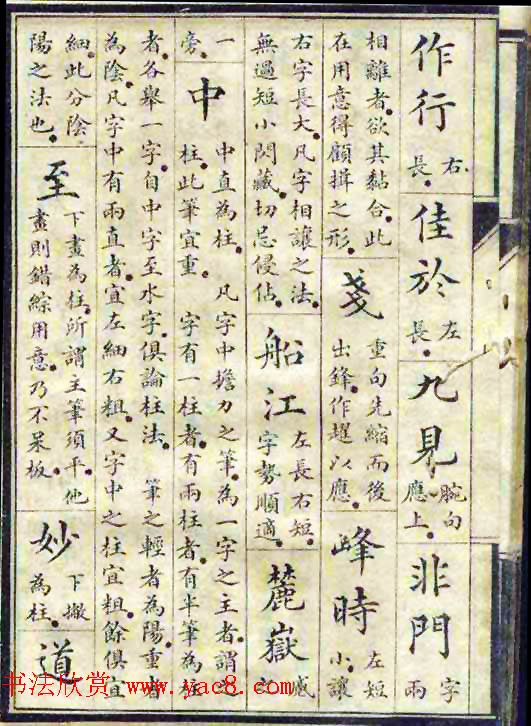 作行 右
長
佳於 左
長
九見 腕向
應上
非門 字
兩
相離者欲其黏合此
在用意得顧揖之形
戔 重向先縮而後
出鋒作趯以應
峰時 左短
小讓
右字長大凡字相讓之法
無過短小閃藏切忌侵佔
船江 左長右短
字勢順適
麓嶽
一
旁
中 中直為柱 凡字中擔力之筆為一字之主者謂之
柱此筆宜重 字有一柱者有兩柱者有半筆為柱
者各舉一字自中字至水字俱論柱法 筆之輕者為陽重者
為陰凡字中有兩直者宜左細右粗又字中之柱宜粗餘俱宜
細此分陰
陽之法也
至 下畫為柱所謂主筆須平他
畫則錯綜用意乃不呆板
妙 下撇
為柱
道
书法欣赏 www.yac8.com